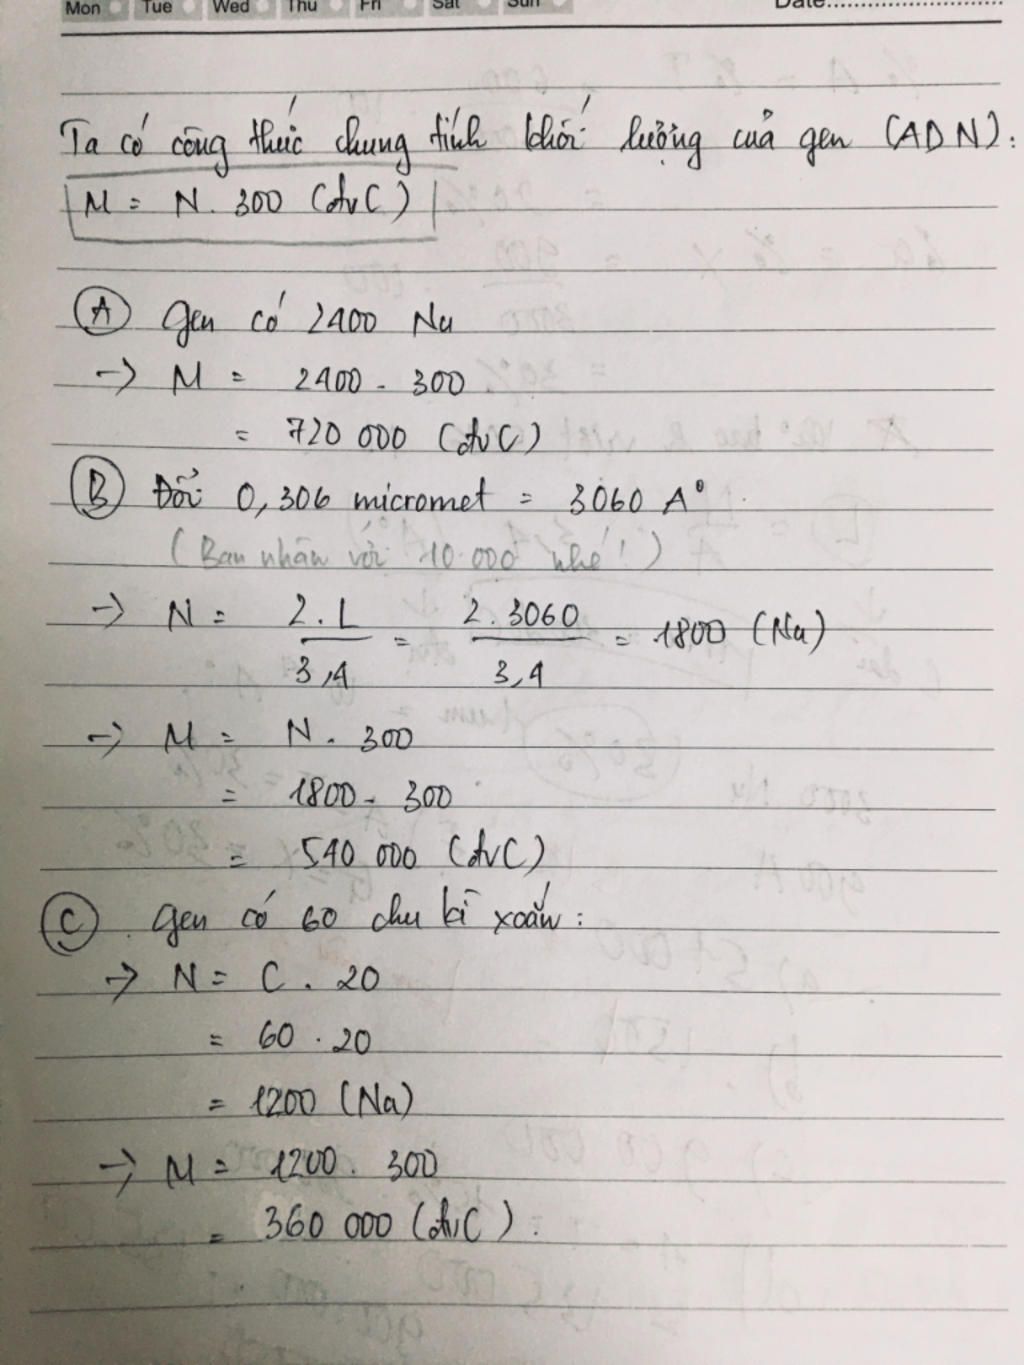 Mon Tue Wed Thu Fri Sat Sun Date
Ta có công thức chung tính khối lượng của gen (ADN):
M = N. 300 (đvC)
A Gen có 2400 Nu
-> M = 2400 . 300
= 720 000 (đvC)
B Đổi 0,306 micromet = 3060 A°
(Bạn nhân với 10.000 nhé!)
-> N = 2.L / 3,4 = 2.3060 / 3,4 = 1800 (Nu)
-> M = N. 300
= 1800. 300
= 540 000 (đvC)
C Gen có 60 chu kì xoắn:
-> N = C. 20
= 60 . 20
= 1200 (Nu)
-> M = 1200. 300
= 360 000 (đvC).